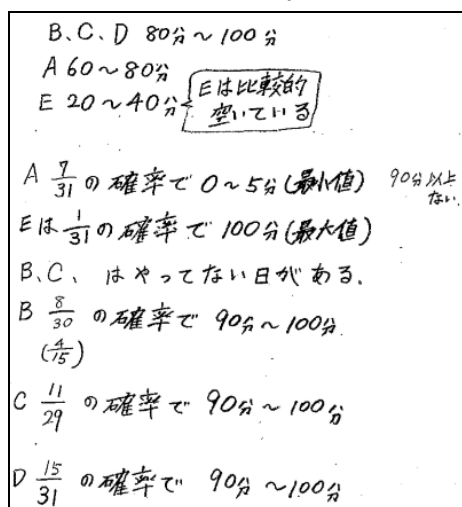 B、C、D 80分～100分
A 60～80分
E 20～40分
Eは比較的
空いている
A 7/31 の確率で 0～5分(最小値) 90分以上
ない。
Eは 1/31 の確率で 100分(最大値)
B、C、はやってない日がある。
B 8/30 の確率で 90分～100分
(4/15)
C 11/29 の確率で 90分～100分
D 15/31 の確率で 90分～100分